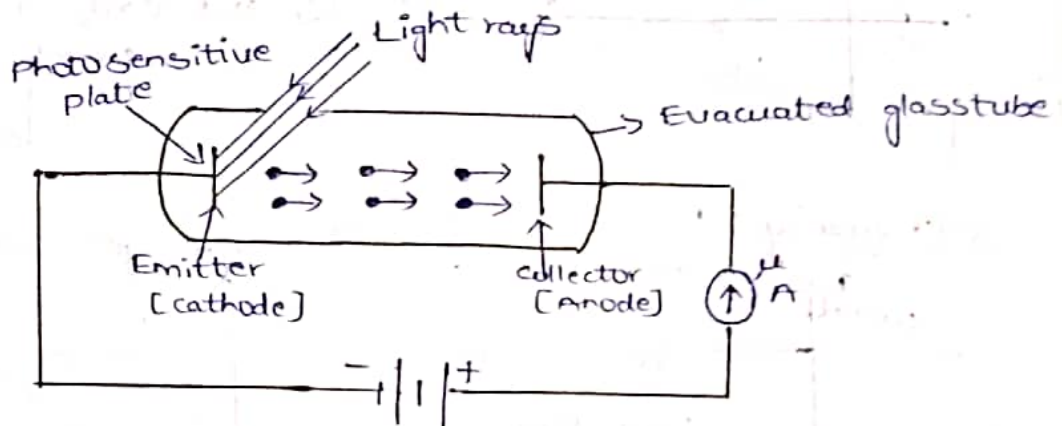 Light rays
Photosensitive
plate
Evacuated glasstube
Emitter
[cathode]
collector
[Anode]
μ
A
- +